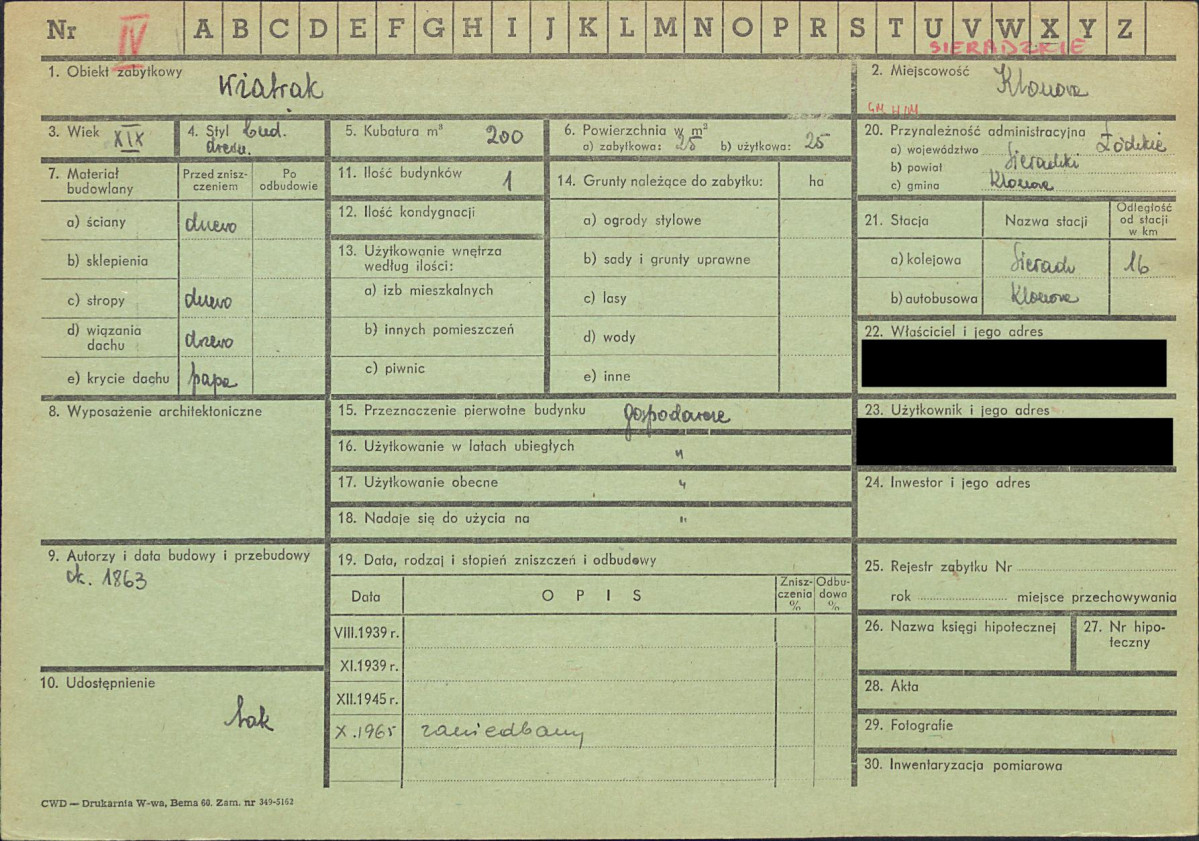 Nr IV A B C D E F G H I J K L M N O P R S T U V W X Y Z
SIERADZKIE
1. Obiekt zabytkowy Wiatrak
2. Miejscowość Klonowa
3. Wiek XIX
4. Styl bud. drewn.
5. Kubatura m³ 200
6. Powierzchnia w m²
a) zabytkowa: 25 b) użytkowa: 25
7. Materiał budowlany
Przed zniszczeniem
Po odbudowie
a) ściany drewo
b) sklepienia
c) stropy drewo
d) wiązania dachu drzewo
e) krycie dachu papa
8. Wyposażenie architektoniczne
9. Autorzy i data budowy i przebudowy
ok. 1863
10. Udostępnienie
tak
11. Ilość budynków 1
12. Ilość kondygnacji
13. Użytkowanie wnętrza
według ilości:
a) izb mieszkalnych
b) innych pomieszczeń
c) piwnic
14. Grunty należące do zabytku: ha
a) ogrody stylowe
b) sady i grunty uprawne
c) lasy
d) wody
e) inne
15. Przeznaczenie pierwotne budynku gospodarcze
16. Użytkowanie w latach ubiegłych "
17. Użytkowanie obecne "
18. Nadaje się do użycia na "
19. Data, rodzaj i stopień zniszczeń i odbudowy
Data OPIS Zniszczenia % Odbudowa %
VIII.1939 r.
XI.1939 r.
XII.1945 r.
X.1965 zaniedbany
20. Przynależność administracyjna
a) województwo Łódzkie
b) powiat Sieradzki
c) gmina Klonowa
21. Stacja Nazwa stacji Odległość od stacji w km
a) kolejowa Sieradz 16
b) autobusowa Klonowa
22. Właściciel i jego adres
23. Użytkownik i jego adres
24. Inwestor i jego adres
25. Rejestr zabytku Nr
rok miejsce przechowywania
26. Nazwa księgi hipotecznej
27. Nr hipoteczny
28. Akta
29. Fotografie
30. Inwentaryzacja pomiarowa
CWD — Drukarnia W-wa, Bema 60. Zam. nr 349-5162